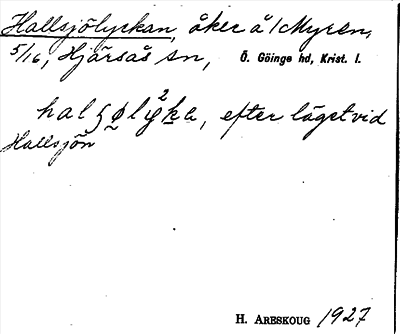 Hallsjölyckan, åker å /Myren,
5/16, Hjärsås sn, Ö. Göinge hd, Krist. l.
efter läget vid
Hallsjön
H. ARESKOUG 1927